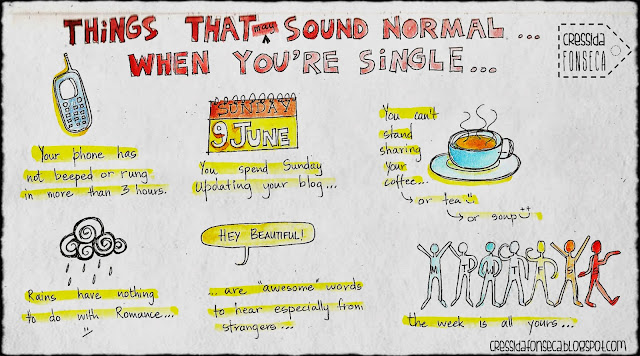 THINGS THAT may SOUND NORMAL ...
WHEN YOU'RE SINGLE...
CRESSIDA
FONSECA
Your phone has
not beeped or rung
in more than 3 hours.
SUNDAY
9 JUNE
You spend Sunday
Updating your blog...
You can't
stand
sharing
your
coffee...
or tea
or soup
Rains have nothing
to do with Romance...
HEY BEAUTIFUL!
... are "awesome" words
to hear especially from
strangers...
M T W T F S S
the week is all yours...
cressidafonseca.blogspot.com